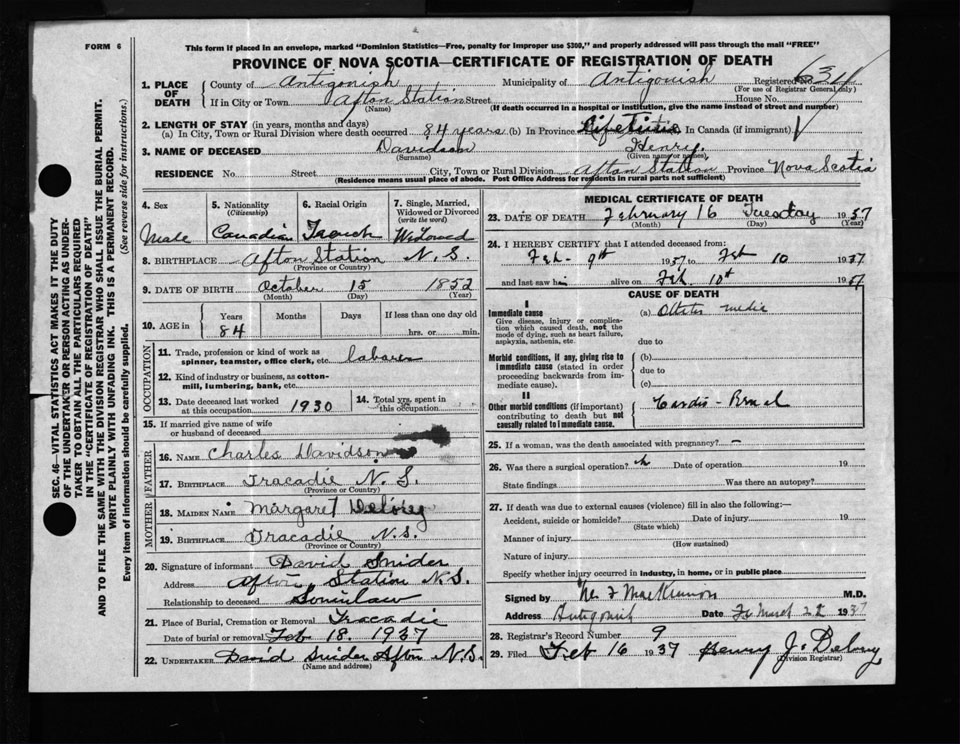 FORM 6
This form if placed in an envelope, marked "Dominion Statistics—Free, penalty for improper use $300," and properly addressed will pass through the mail "FREE"
PROVINCE OF NOVA SCOTIA—CERTIFICATE OF REGISTRATION OF DEATH
1. PLACE OF DEATH
County of Antigonish Municipality of Antigonish Registered No.
(For use of Registrar General only)
If in City or Town Afton Station Street House No.
(Name) (If death occurred in a hospital or institution, give the name instead of street and number)
2. LENGTH OF STAY (in years, months and days)
(a) In City, Town or Rural Division where death occurred 84 years (b) In Province Lifetime In Canada (if immigrant)
3. NAME OF DECEASED Davidson Henry.
(Surname) (Given name or names)
RESIDENCE No. Street City, Town or Rural Division Afton Station Province Nova Scotia
(Residence means usual place of abode. Post Office Address for residents in rural parts not sufficient)
4. Sex
Male
5. Nationality
(Citizenship)
Canadian
6. Racial Origin
French
7. Single, Married, Widowed or Divorced
(write the word)
Widowed
8. BIRTHPLACE Afton Station N.S.
(Province or Country)
9. DATE OF BIRTH October 15 1852
(Month) (Day) (Year)
10. AGE in
Years Months Days If less than one day old
84 hrs. or min.
OCCUPATION
11. Trade, profession or kind of work as spinner, teamster, office clerk, etc. labarer
12. Kind of industry or business, as cotton-mill, lumbering, bank, etc.
13. Date deceased last worked at this occupation 1930
14. Total yrs. spent in this occupation
15. If married give name of wife or husband of deceased
FATHER
16. NAME Charles Davidson
17. BIRTHPLACE Tracadie N.S.
(Province or Country)
MOTHER
18. MAIDEN NAME Margaret Delorey
19. BIRTHPLACE Tracadie N.S.
(Province or Country)
20. Signature of informant David Snider
Address Afton Station N.S.
Relationship to deceased Soninlaw
21. Place of Burial, Cremation or Removal Tracadie
Date of burial or removal Feb 18. 1937
22. UNDERTAKER David Snider Afton N.S.
(Name and address)
MEDICAL CERTIFICATE OF DEATH
23. DATE OF DEATH February 16 Tuesday 1937
(Month) (Day) (Year)
24. I HEREBY CERTIFY that I attended deceased from:
Feb - 9th 1937 to Feb 10 1937
and last saw him alive on Feb. 10th 1937
CAUSE OF DEATH
I
Immediate cause
Give disease, injury or complication which caused death, not the mode of dying, such as heart failure, asphyxia, asthenia, etc.
(a) Ottitis media
due to
Morbid conditions, if any, giving rise to immediate cause (stated in order proceeding backwards from immediate cause).
(b)
due to
(c)
II
Other morbid conditions (if important) contributing to death but not causally related to immediate cause.
Cardio - Renal
25. If a woman, was the death associated with pregnancy? –
26. Was there a surgical operation? Date of operation 19
State findings Was there an autopsy?
27. If death was due to external causes (violence) fill in also the following:—
Accident, suicide or homicide? Date of injury 19
(State which)
Manner of injury
(How sustained)
Nature of injury
Specify whether injury occurred in industry, in home, or in public place
Signed by MacKinnon M.D.
Address Antigonish Date March 22 1937
28. Registrar's Record Number 9
29. Filed Feb 16 1937 Henry J. Delorey
(Division Registrar)
SEC. 46—VITAL STATISTICS ACT MAKES IT THE DUTY
OF THE UNDERTAKER OR PERSON ACTING AS UNDERTAKER TO OBTAIN ALL THE PARTICULARS REQUIRED
IN THE "CERTIFICATE OF REGISTRATION OF DEATH"
AND TO FILE THE SAME WITH THE DIVISION REGISTRAR WHO SHALL ISSUE THE BURIAL PERMIT.
WRITE PLAINLY WITH UNFADING INK. THIS IS A PERMANENT RECORD.
Every item of information should be carefully supplied. (See reverse side for instructions.)